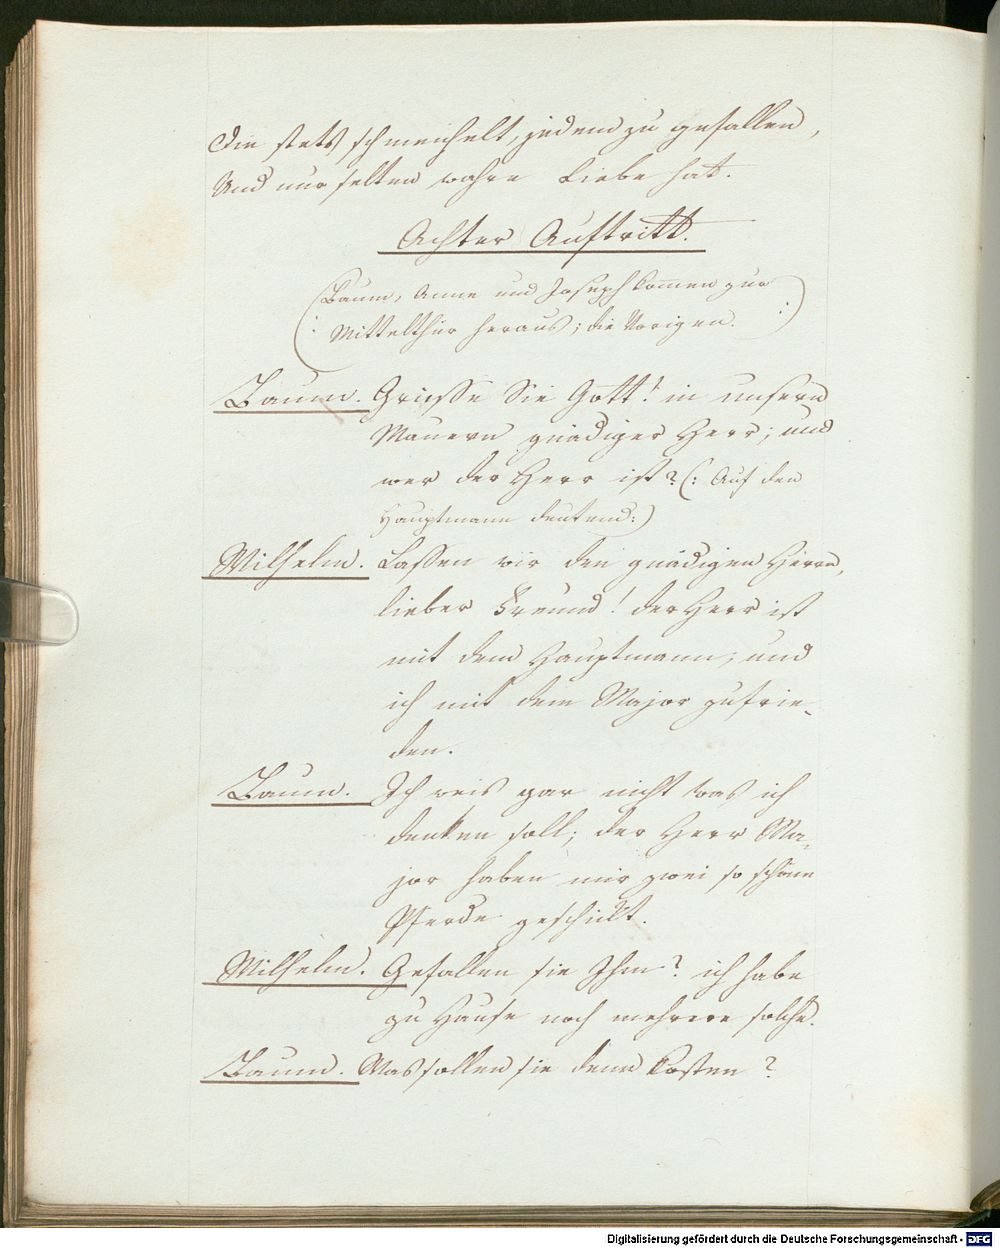 Die stets schmeichelt, jedem zu gefallen,
Und nur selten wahre Liebe hat.
Achter Auftritt.
(Baum, Anne und Joseph kom̄en zur
Mittelthür heraus; die Vorigen. :)
Baum. Griesse Sie Gott! in unsern
Mauern gnädiger Herr; und
wer der Herr ist? (: Auf den
Hauptmann deutend:)
Wilhelm. Lassen wir den gnädigen Herrn,
lieber Freund! der Herr ist
mit dem Hauptmann, und
ich mit dem Major zufrie-
den.
Baum. Ich weis gar nicht was ich
denken soll; der Herr Ma-
jor haben mir zwei so schöne
Pferde geschikt.
Wilhelm. Gefallen sie Ihm? ich habe
zu Hause noch mehrere solche.
Baum. Was sollen sie denn kosten?
Digitalisierung gefördert durch die Deutsche Forschungsgemeinschaft - DFG